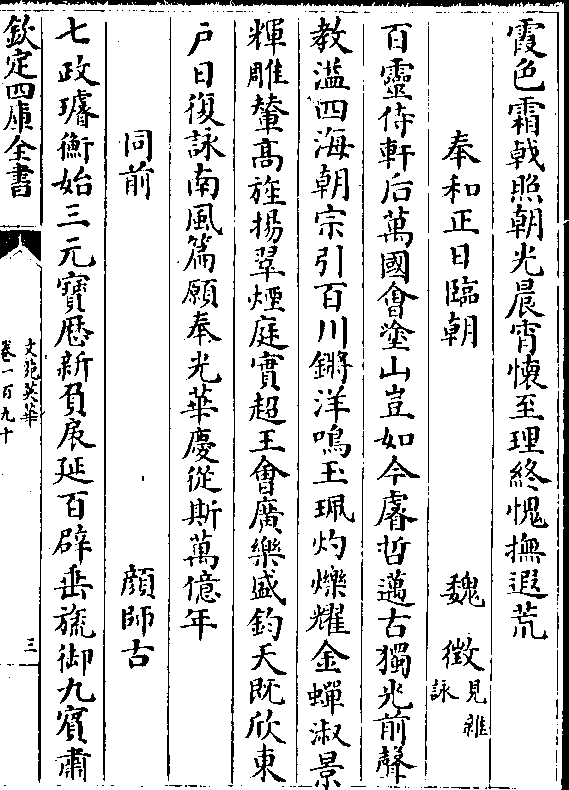 霞色霜戟照朝光晨宵懐至理終愧撫遐荒
奉和正日臨朝 魏徵見雜詠
百靈侍軒后萬國㑹塗山豈如今睿哲邁古獨光前聲
教溢四海朝宗引百川鏘洋鳴玉珮灼爍耀金蟬淑景
輝雕輦髙旌揚翠煙庭實超王㑹廣樂盛鈞天既欣東
戸日復詠南風篇願奉光華慶從斯萬億年
同前 顔師古
七政璿衡始三元寶厯新負扆延百辟垂旒御九賓肅
欽定四庫全書
文苑英華
卷一百九十
三